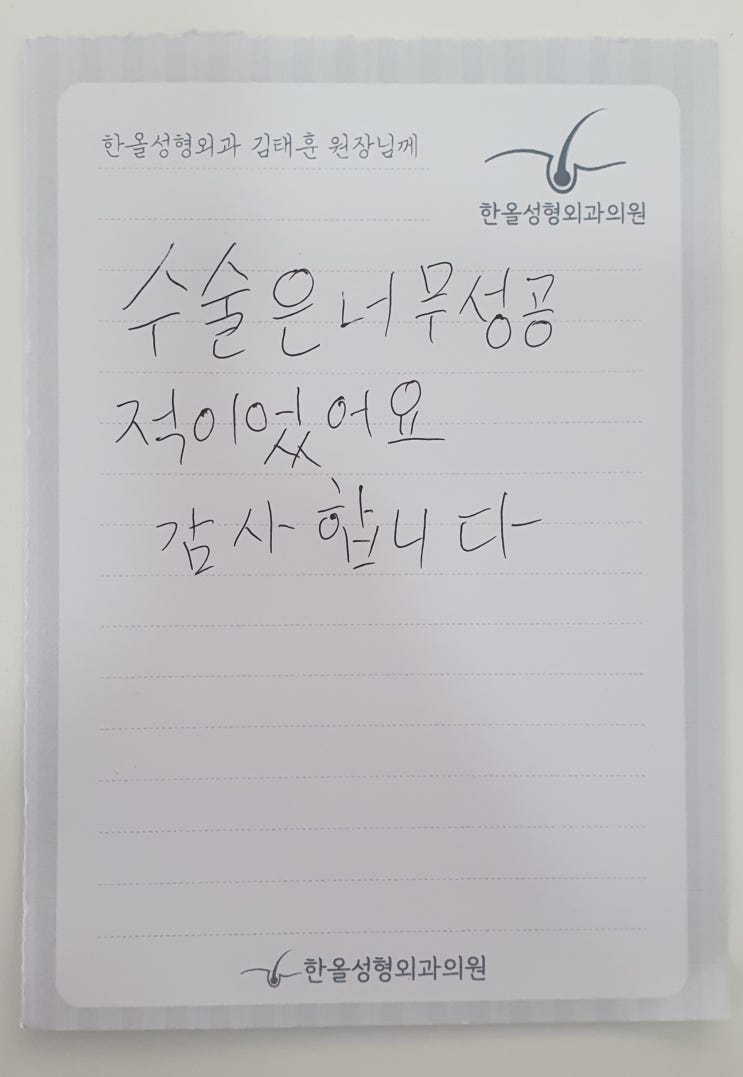 한올성형외과 김태훈 원장님께
한올성형외과의원
수술은 너무성공
적이었어요
감사합니다
한올성형외과의원